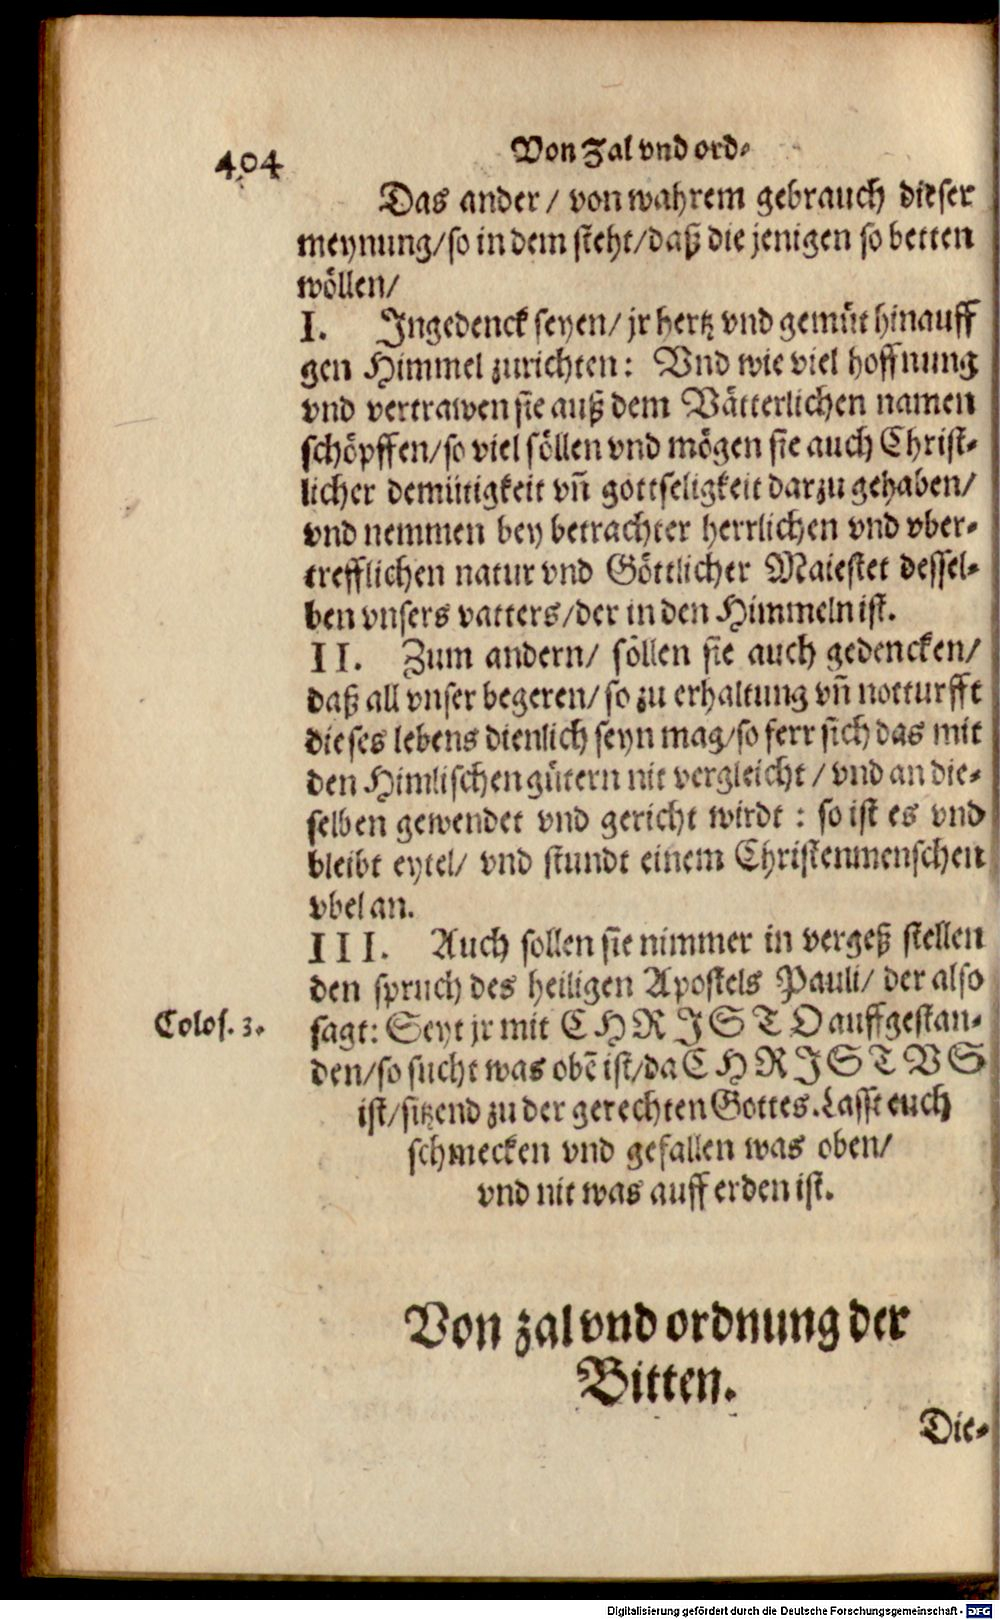 404
Von Zal vnd ord-
Das ander/ von wahrem gebrauch dieser
meynung/so in dem steht/daß die jenigen so betten
wöllen/
I. Ingedenck seyen/ jr hertz vnd gemüt hinauff
gen Himmel zurichten: Vnd wie viel hoffnung
vnd vertrawen sie auß dem Vätterlichen namen
schöpffen/so viel söllen vnd mögen sie auch Christ-
licher demütigkeit vñ gottseligkeit darzu gehaben/
vnd nemmen bey betrachter herrlichen vnd vber-
trefflichen natur vnd Göttlicher Maiestet dessel-
ben vnsers vatters/der in den Himmeln ist.
II. Zum andern/ söllen sie auch gedencken/
daß all vnser begeren/ so zu erhaltung vñ notturfft
dieses lebens dienlich seyn mag/so ferr sich das mit
den Himlischen gütern nit vergleicht / vnd an die-
selben gewendet vnd gericht wirdt : so ist es vnd
bleibt eytel/ vnd stundt einem Christenmenschen
vbel an.
III. Auch sollen sie nimmer in vergeß stellen
den spruch des heiligen Apostels Pauli/ der also
Colos. 3.
sagt: Seyt jr mit CHRISTO auffgestan-
den/so sucht was obē ist/da CHRISTVS
ist/sitzend zu der gerechten Gottes. Lasst euch
schmecken vnd gefallen was oben/
vnd nit was auff erden ist.
Von zal vnd ordnung der
Bitten.
Die-
Digitalisierung gefördert durch die Deutsche Forschungsgemeinschaft - DFG